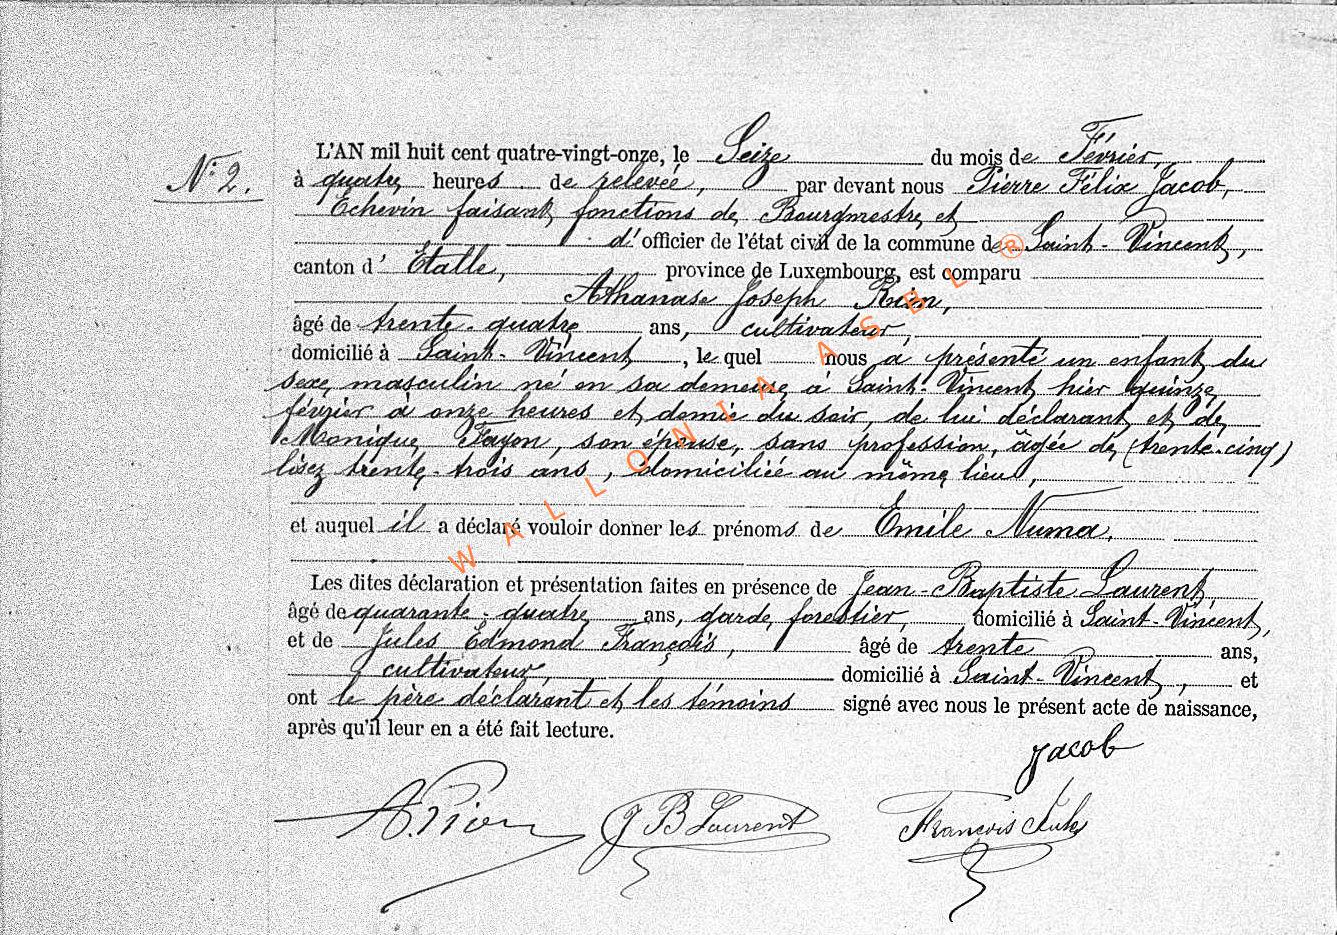 N° 2.
L'AN mil huit cent quatre-vingt-onze, le Seize du mois de Février,
à quatre heures de relevée, par devant nous Pierre Félix Jacob,
Echevin faisant fonctions de Bourgmestre et
d'officier de l'état civil de la commune de Saint-Vincent,
canton d' Etalle, province de Luxembourg, est comparu
Athanase Joseph
âgé de trente-quatre ans, cultivateur,
domicilié à Saint-Vincent, le quel nous a présenté un enfant du
sexe masculin né en sa demeure à Saint-Vincent hier quinze
février à onze heures et demie du soir, de lui déclarant et de
Monique Fayon, son épouse, sans profession, âgée de (trente-cinq)
lisez trente-trois ans, domiciliée au même lieu,
et auquel il a déclaré vouloir donner les prénoms de Emile Numa.
Les dites déclaration et présentation faites en présence de Jean-Baptiste Laurent,
âgé de quarante-quatre ans, garde forestier, domicilié à Saint-Vincent,
et de Jules Edmond François, âgé de trente ans,
cultivateur, domicilié à Saint-Vincent, et
ont le père déclarant et les témoins signé avec nous le présent acte de naissance,
après qu'il leur en a été fait lecture.
Jacob
A. J B Laurent François Jules
WALLONIA ASBL ®